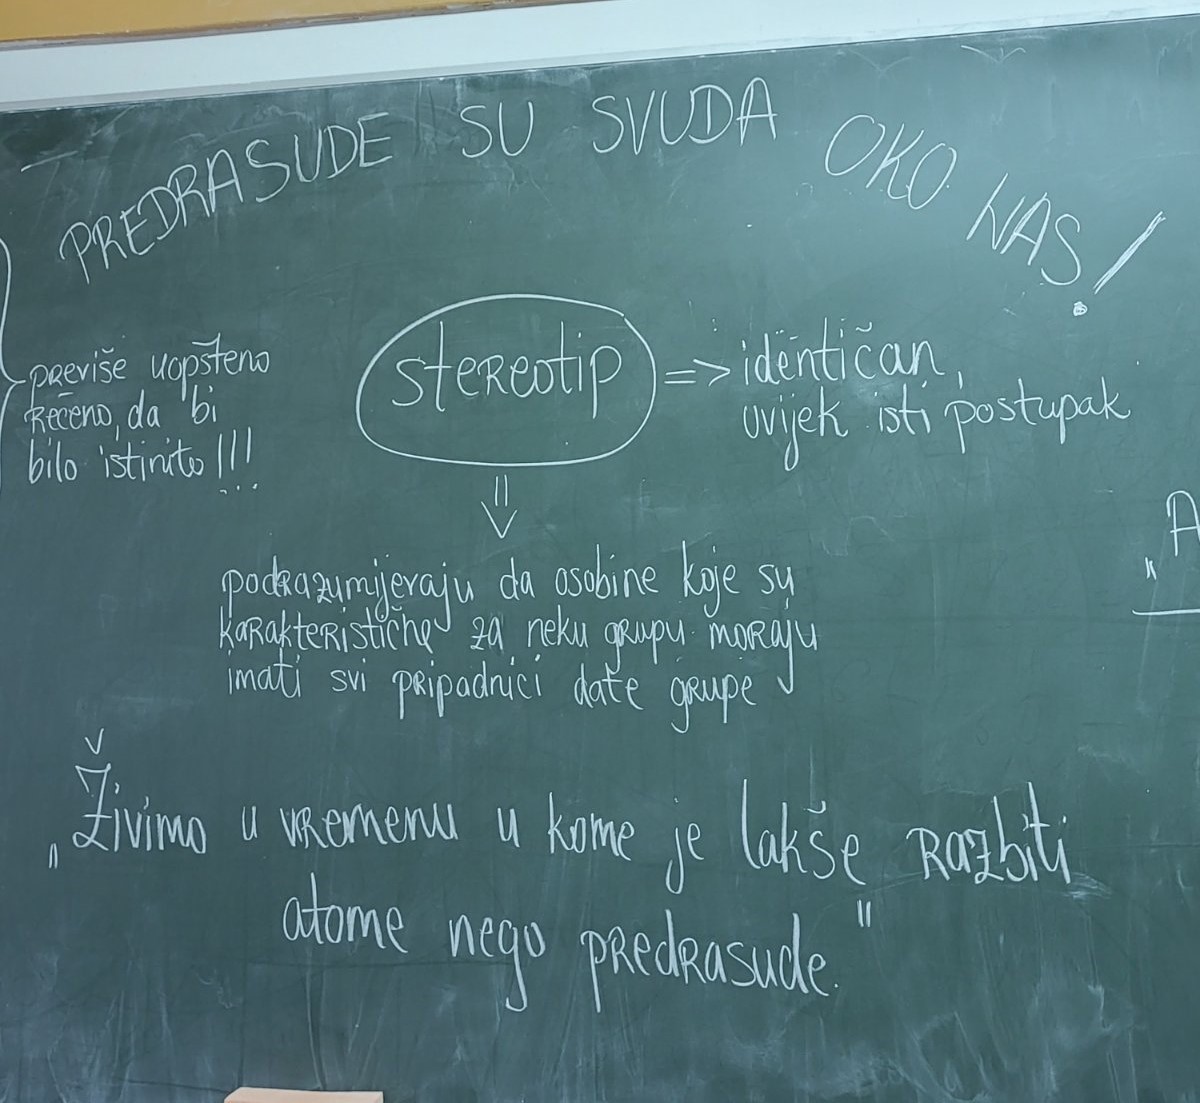 PREDRASUDE SU SVUDA OKO NAS!
previše uopšteno
rečeno, da bi
bilo istinito!!!
stereotip => identičan,
uvijek isti postupak
podrazumijevaju da osobine koje su
karakteristične za neku grupu moraju
imati svi pripadnici date grupe
„Živimo u vremenu u kome je lakše razbiti
atome nego predrasude."
„A